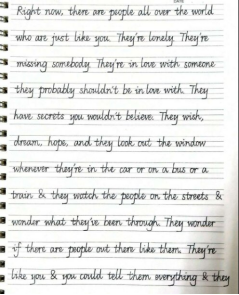 Right now, there are people all over the world
who are just like you. They're lonely. They're
missing somebody. They're in love with someone
they probably shouldn't be in love with. They
have secrets you wouldn't believe. They wish,
dream, hope, and they look out the window
whenever they're in the car or on a bus or a
train & they watch the people on the streets &
wonder what they've been through. They wonder
if there are people out there like them. They're
like you & you could tell them everything & they